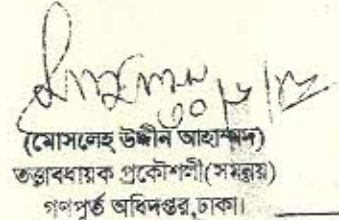 ৩০/৮/১২
(মোসলেহ উদ্দীন আহাম্মদ)
তত্ত্বাবধায়ক প্রকৌশলী(সমন্বয়)
গণপূর্ত অধিদপ্তর,ঢাকা।